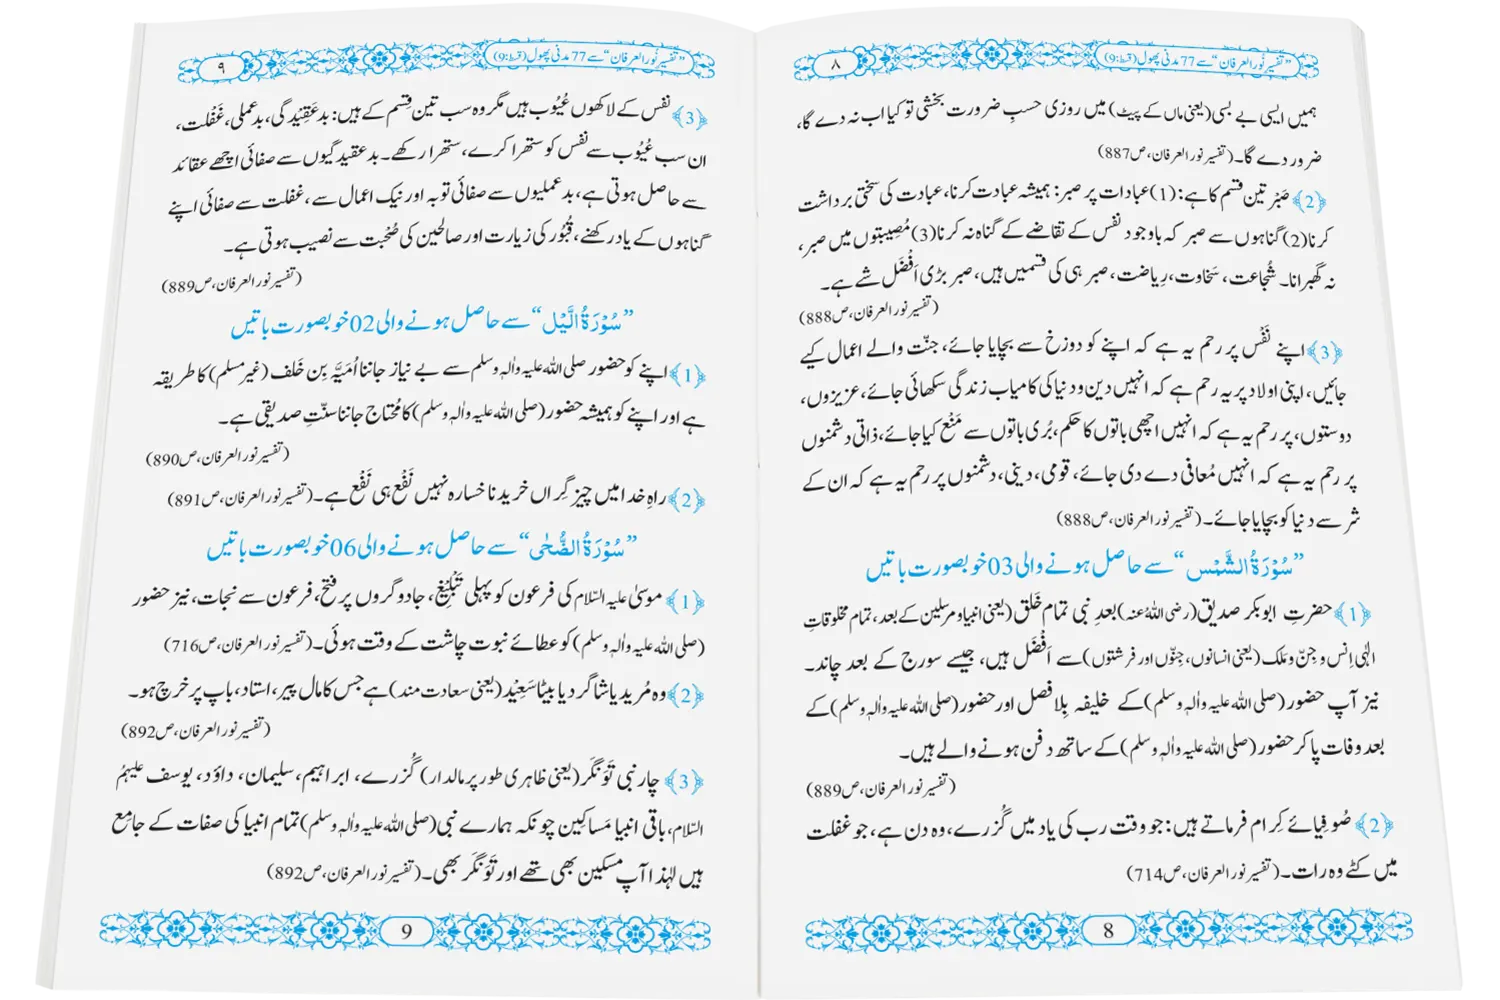 ”تفسیر نورالعرفان“ سے 77 مدنی پھول (قسط:9)
۸
ہمیں ایسی بے بسی (یعنی ماں کے پیٹ) میں روزی حسبِ ضرورت بخشی تو کیا اب نہ دے گا،
ضرور دے گا۔ (تفسیر نورالعرفان، ص887)
﴿2﴾ صَبْر تین قسم کا ہے: (1) عبادات پر صبر: ہمیشہ عبادت کرنا، عبادت کی سختی برداشت
کرنا (2) گناہوں سے صبر کہ باوجود نفس کے تقاضے کے گناہ نہ کرنا (3) مُصیبتوں میں صبر،
نہ گھبرانا۔ شُجاعت، سَخاوت، رِیاضت، صبر ہی کی قسمیں ہیں، صبر بڑی اَفْضَل شے ہے۔
(تفسیر نورالعرفان، ص888)
﴿3﴾ اپنے نَفْس پر رحم یہ ہے کہ اپنے کو دوزخ سے بچایا جائے، جنّت والے اعمال کیے
جائیں، اپنی اولاد پر یہ رحم ہے کہ انہیں دین و دنیا کی کامیاب زندگی سکھائی جائے، عزیزوں،
دوستوں، پر رحم یہ ہے کہ انہیں اچھی باتوں کا حکم، بُری باتوں سے مَنْع کیا جائے، ذاتی دشمنوں
پر رحم یہ ہے کہ انہیں مُعافی دے دی جائے، قومی، دینی، دشمنوں پر رحم یہ ہے کہ ان کے
شر سے دنیا کو بچایا جائے۔ (تفسیر نورالعرفان، ص888)
”سُوْرَۃُ الشَّمْس“ سے حاصل ہونے والی 03 خوبصورت باتیں
﴿1﴾ حضرتِ ابوبکر صدیق (رضی اللہُ عنہ) بعدِ نبی تمام خَلق (یعنی انبیا و مرسلین کے بعد، تمام مخلوقاتِ
الٰہی اِنس و جِنّ و مَلک (یعنی انسانوں، جِنّوں اور فرشتوں) سے اَفْضَل ہیں، جیسے سورج کے بعد چاند۔
نیز آپ حضور (صلی اللہ علیہ واٰلہٖ وسلم) کے خلیفہ بِلافصل اور حضور (صلی اللہ علیہ واٰلہٖ وسلم) کے
بعد وفات پا کر حضور (صلی اللہ علیہ واٰلہٖ وسلم) کے ساتھ دفن ہونے والے ہیں۔
(تفسیر نورالعرفان، ص889)
﴿2﴾ صُوفیائے کِرام فرماتے ہیں: جو وقت رب کی یاد میں گُزرے، وہ دن ہے، جو غفلت
میں کٹے وہ رات۔ (تفسیر نورالعرفان، ص714)
8
”تفسیر نورالعرفان“ سے 77 مدنی پھول (قسط:9)
۹
﴿3﴾ نفس کے لاکھوں عُیُوب ہیں مگر وہ سب تین قِسم کے ہیں: بدعَقِیدگی، بدعملی، غَفْلت،
ان سب عُیُوب سے نفس کو ستھرا کرے، ستھرا رکھے۔ بدعقیدگیوں سے صفائی اچھے عقائد
سے حاصل ہوتی ہے، بدعملیوں سے صفائی توبہ اور نیک اعمال سے، غفلت سے صفائی اپنے
گناہوں کے یاد رکھنے، قُبُور کی زیارت اور صالحین کی صُحْبت سے نصیب ہوتی ہے۔
(تفسیر نورالعرفان، ص889)
”سُوْرَۃُ الَّیْل“ سے حاصل ہونے والی 02 خوبصورت باتیں
﴿1﴾ اپنے کو حضور صلی اللہ علیہ واٰلہٖ وسلم سے بے نیاز جاننا اُمَیَّہ بِن خَلف (غیر مسلم) کا طریقہ
ہے اور اپنے کو ہمیشہ حضور (صلی اللہ علیہ واٰلہٖ وسلم) کا مُحتاج جاننا سنّتِ صدیقی ہے۔
(تفسیر نورالعرفان، ص890)
﴿2﴾ راہِ خدا میں چیز گِراں خریدنا خسارہ نہیں نَفْع ہی نَفْع ہے۔ (تفسیر نورالعرفان، ص891)
”سُوْرَۃُ الضُّحٰی“ سے حاصل ہونے والی 06 خوبصورت باتیں
﴿1﴾ موسیٰ علیہ السّلام کی فرعون کو پہلی تَبْلِیْغ، جادوگروں پر فتح، فرعون سے نجات، نیز حضور
(صلی اللہ علیہ واٰلہٖ وسلم) کو عطائے نبوت چاشت کے وقت ہوئی۔ (تفسیر نورالعرفان، ص716)
﴿2﴾ وہ مُرید یا شاگرد یا بیٹا سَعِیْد (یعنی سعادت مند) ہے جس کا مال پیر، استاد، باپ پر خرچ ہو۔
(تفسیر نورالعرفان، ص892)
﴿3﴾ چار نبی تَوَنگَر (یعنی ظاہری طور پر مالدار) گُزرے، ابراہیم، سلیمان، داوٗد، یوسف علیہمُ
السّلام، باقی انبیا مَساکِین چونکہ ہمارے نبی (صلی اللہ علیہ واٰلہٖ وسلم) تمام انبیا کی صفات کے جامِع
ہیں لہٰذا آپ مسکین بھی تھے اور تَوَنگَر بھی۔ (تفسیر نورالعرفان، ص892)
9